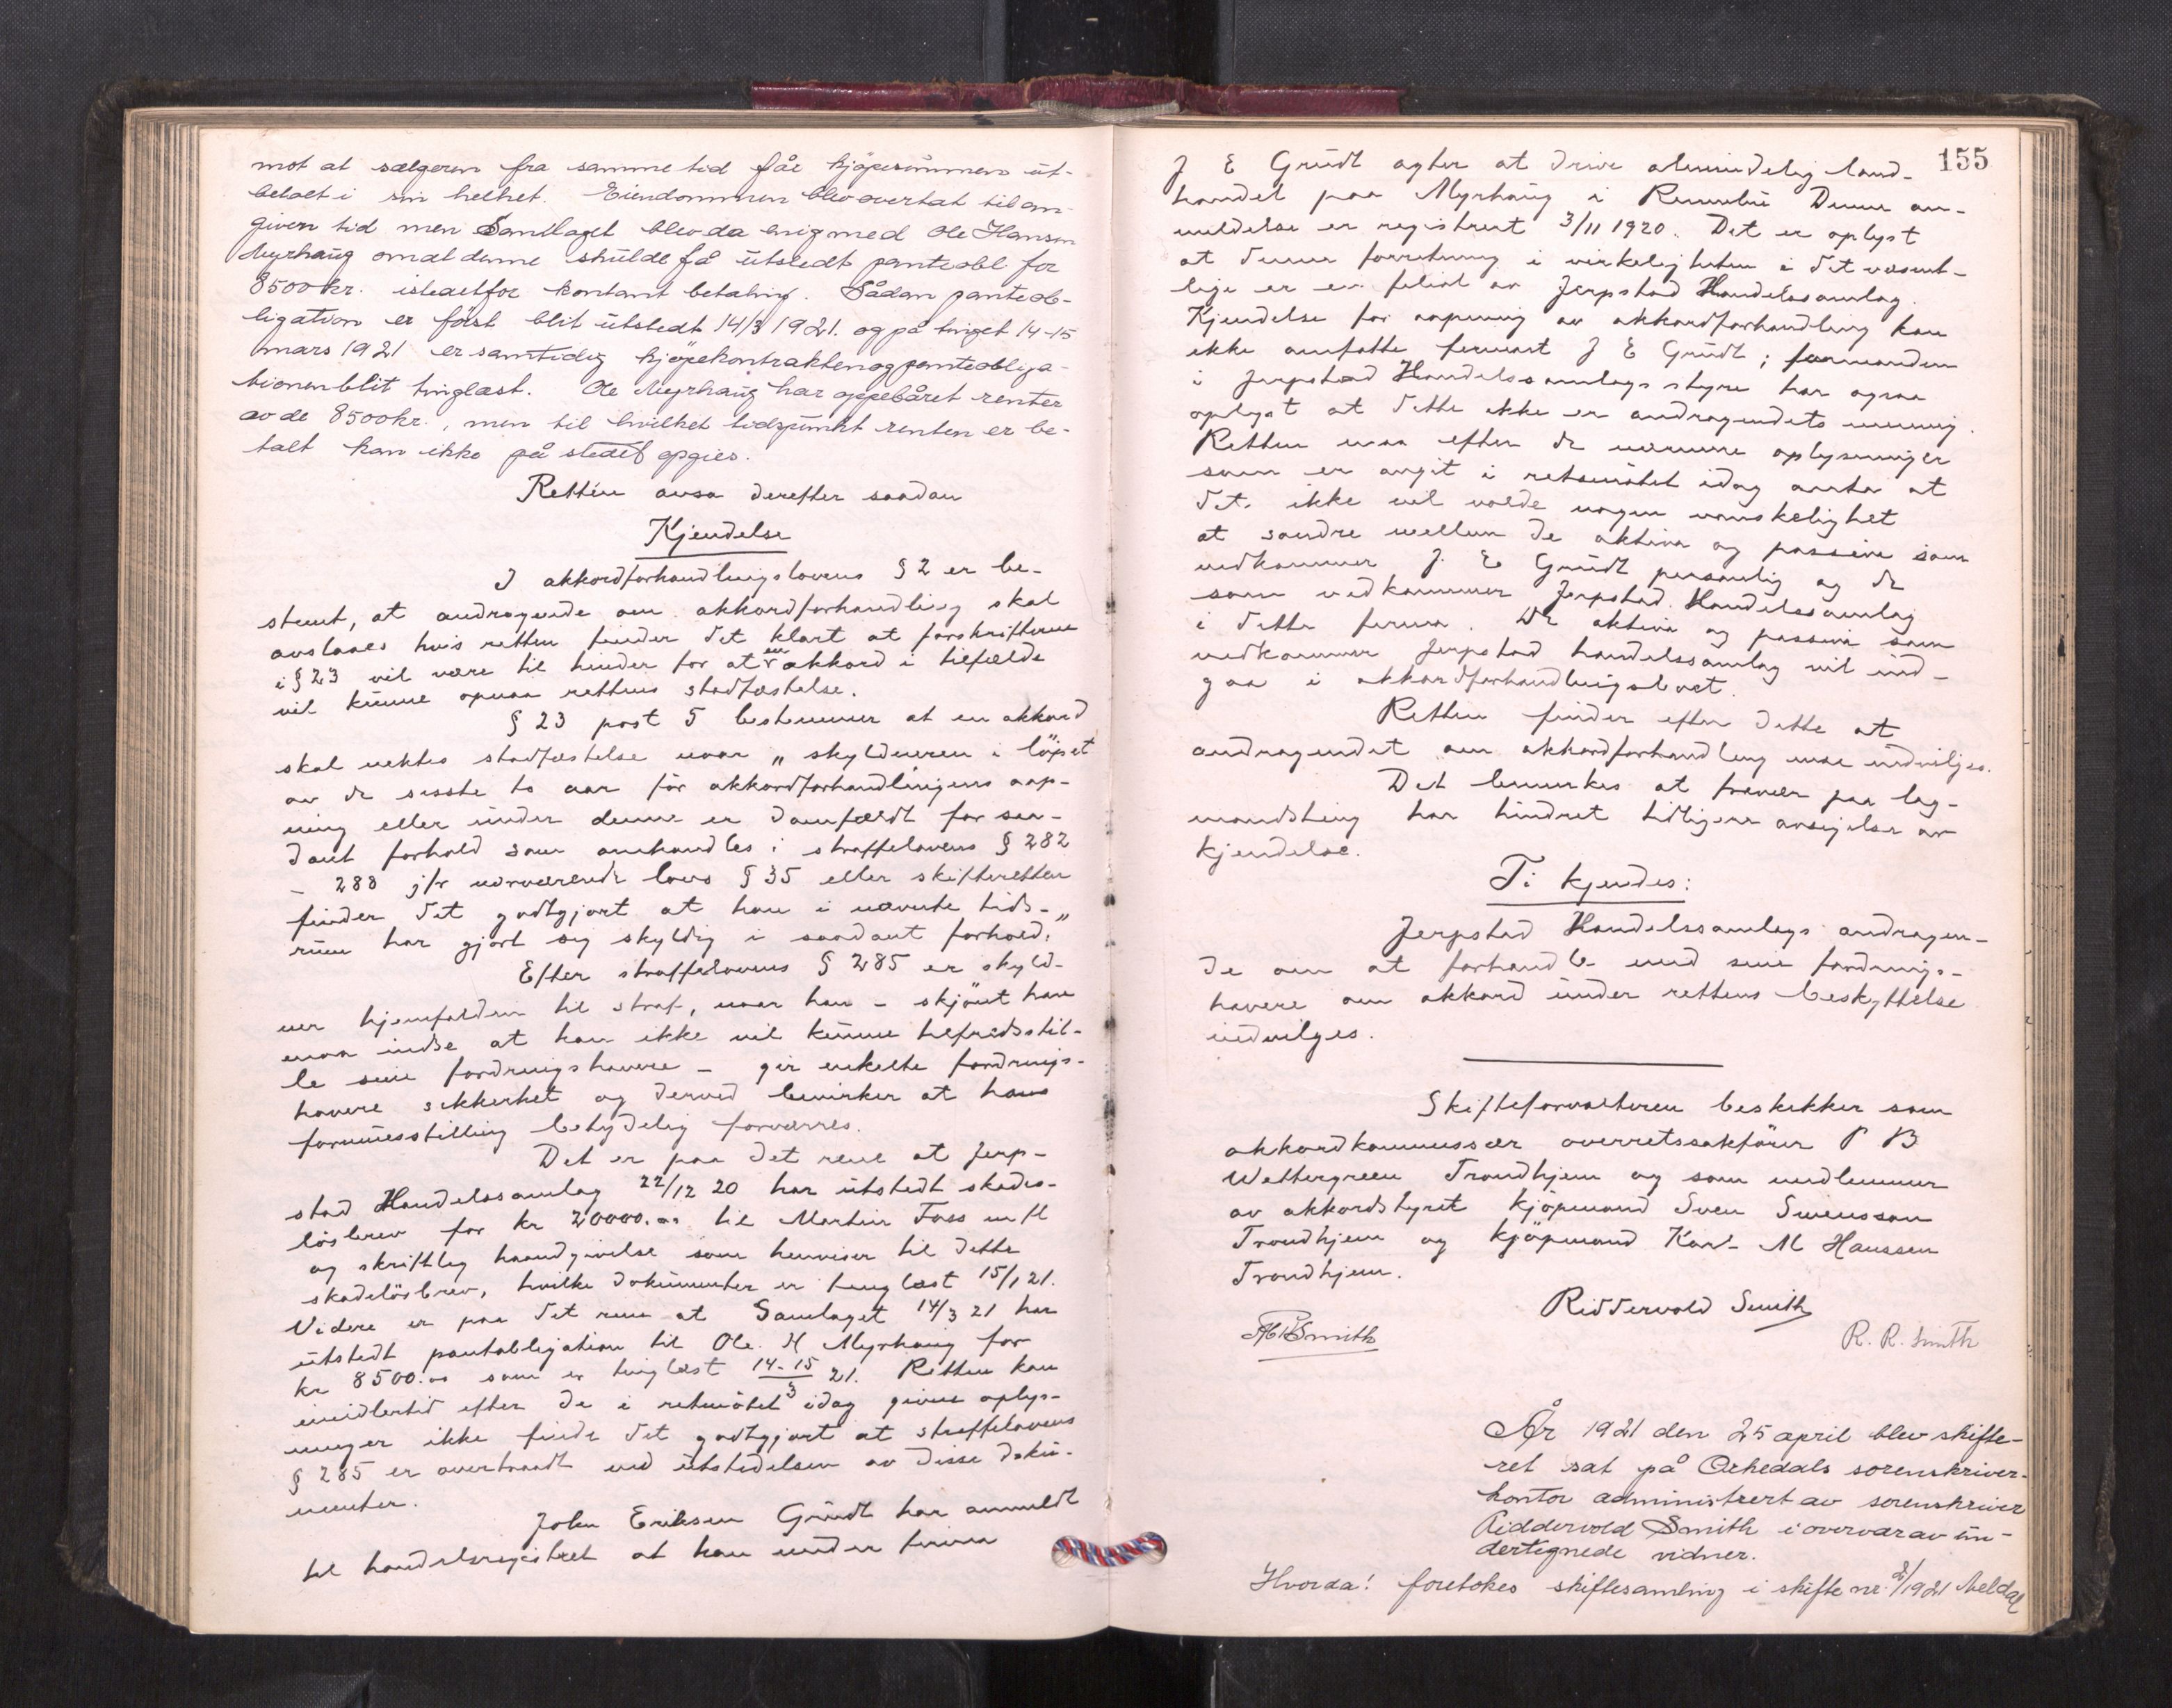 mot at sælgeren fra samme tid får kjöpesummen ut-
betalt i sin helhet. Eiendommen blev overtat til an-
given tid men Samlaget blev da enig med Ole Hansen
Myrhaug om at denne skulde få utstedt panteobl. for
8500 kr. istedetfor kontant betaling. Sådan panteob-
ligation er först blit utstedt 14/3 1921. og på tinget 14-15
mars 1921 er samtidig kjöpekontrakten og panteobliga-
tionen blit tinglæst. Ole Myrhaug har oppebåret renter
av de 8500 kr., men til hvilket tidspunkt renten er be-
talt kan ikke på stedet opgies.
Retten avsa derefter saadan
Kjendelse
I akkordforhandlingslovens § 2 er be-
stemt, at andragende om akkordforhandling skal
avslaaes hvis retten finder det klart at forskrifterne
i § 23 vil være til hinder for at en akkord i tilfælde
vil kunne opnaa rettens stadfæstelse.
§ 23 post 5 bestemmer at en akkord
skal nektes stadfæstelse naar „ skyldneren i löpet
av de sisste to aar för akkordforhandlingens aap-
ning eller under denne er domfældt for saa-
dant forhold som omhandles i straffelovens § 282
- 288 jfr nærværende lovs § 35 eller skifteretten
finder det godtgjort at han i nævnte tids-
rum har gjort sig skyldig i saadant forhold."
Efter straffelovens § 285 er skyld-
ner hjemfalden til straf, naar han - skjönt han
maa indse at han ikke vil kunne tilfredsstil-
le sine fordringshavere - gir enkelte fordrings-
havere sikkerhet og derved bevirker at hans
formuesstilling betydelig forværres.
Det er paa det rene at Jerp-
stad Handelssamlag 22/12 20 har utstedt skades-
lösbrev for kr 20000.00 til Martin Foss
og skriftlig haandgivelse som henviser til dette
skadelösbrev, hvilke dokumenter er tinglæst 15/1 21.
Videre er paa det rene at Samlaget 14/3 21 har
utstedt pantobligation til Ole H Myrhaug for
kr 8500.00 som er tinglæst 14-15/3 21. Retten kan
imidlertid efter de i retsmötet idag givne oplys-
ninger ikke finde det godtgjort at straffelovens
§ 285 er overtraadt ved utstedelsen av disse doku-
menter.
John Eriksen Grudt har anmeldt
til handelsregistret at han under firma
155
J E Grudt agter at drive almindelig land-
handel paa Myrhaug i Rennebu Denne an-
meldelse er registrert 3/11 1920. Det er oplyst
at denne forretning i virkeligheten i det væsent-
lige er en filial av Jerpstad Handelssamlag.
Kjendelse for aapning av akkordforhandling kan
ikke omfatte firmaet J E Grudt; formanden
i Jerpstad Handelssamlags styre har ogsaa
oplyst at dette ikke er andragendets mening.
Retten maa efter de nærmere oplysninger
som er avgit i retsmötet idag anta at
det ikke vil volde nogen vanskelighet
at sondre mellem de aktiva og passiva som
vedkommer J. E Grudt personlig og de
som vedkommer Jerpstad Handelssamlag
i dette firma. De aktiva og passiva som
vedkommer Jerpstad handelssamlag vil ind-
gaa i akkordforhandlingsboet.
Retten finder efter dette at
andragendet om akkordforhandling maa indvilges.
Det bemerkes at fravær paa lag-
mandsting har hindret tidligere avsigelse av
kjendelse.
Ti kjendes:
Jerpstad Handelssamlags andragen-
de om at forhandle med sine fordrings-
havere om akkord under rettens beskyttelse
indvilges.
Skifteforvalteren beskikker som
akkordkommissær overretssakförer P B
Wettergreen Trondhjem og som medlemmer
av akkordstyret kjöpmand Sven Svensson
Trondhjem og kjöpmand Karl M Hanssen
Trondhjem.
Riddervold Smith
Smith
R. R. Smith
År 1921 den 25 april blev skifte-
ret sat på Orkedals sorenskriver-
kontor administrert av sorenskriver
Riddervold Smith i overvær av un-
dertegnede vidner.
Hvorda! foretokes skiftesamling i skifte nr. 8/1921 Meldal